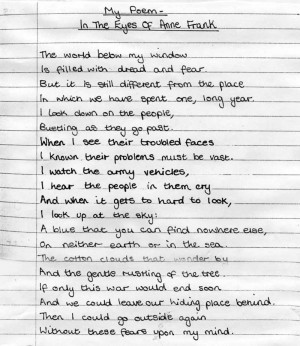 My Poem-
In The Eyes Of Anne Frank
The world below my window
Is filled with dread and fear.
But it is still different from the place
In which we have spent one, long year.
I look down on the people,
Bustling as they go past.
When I see their troubled faces
I known their problems must be vast.
I watch the army vehicles,
I hear the people in them cry
And when it gets to hard to look,
I look up at the sky:
A blue that you can find nowhere else,
On neither earth or in the sea.
The cotton clouds that wander by
And the gentle rustling of the tree.
If only this war would end soon
And we could leave our hiding place behind.
Then I could go outside again
Without these fears upon my mind.